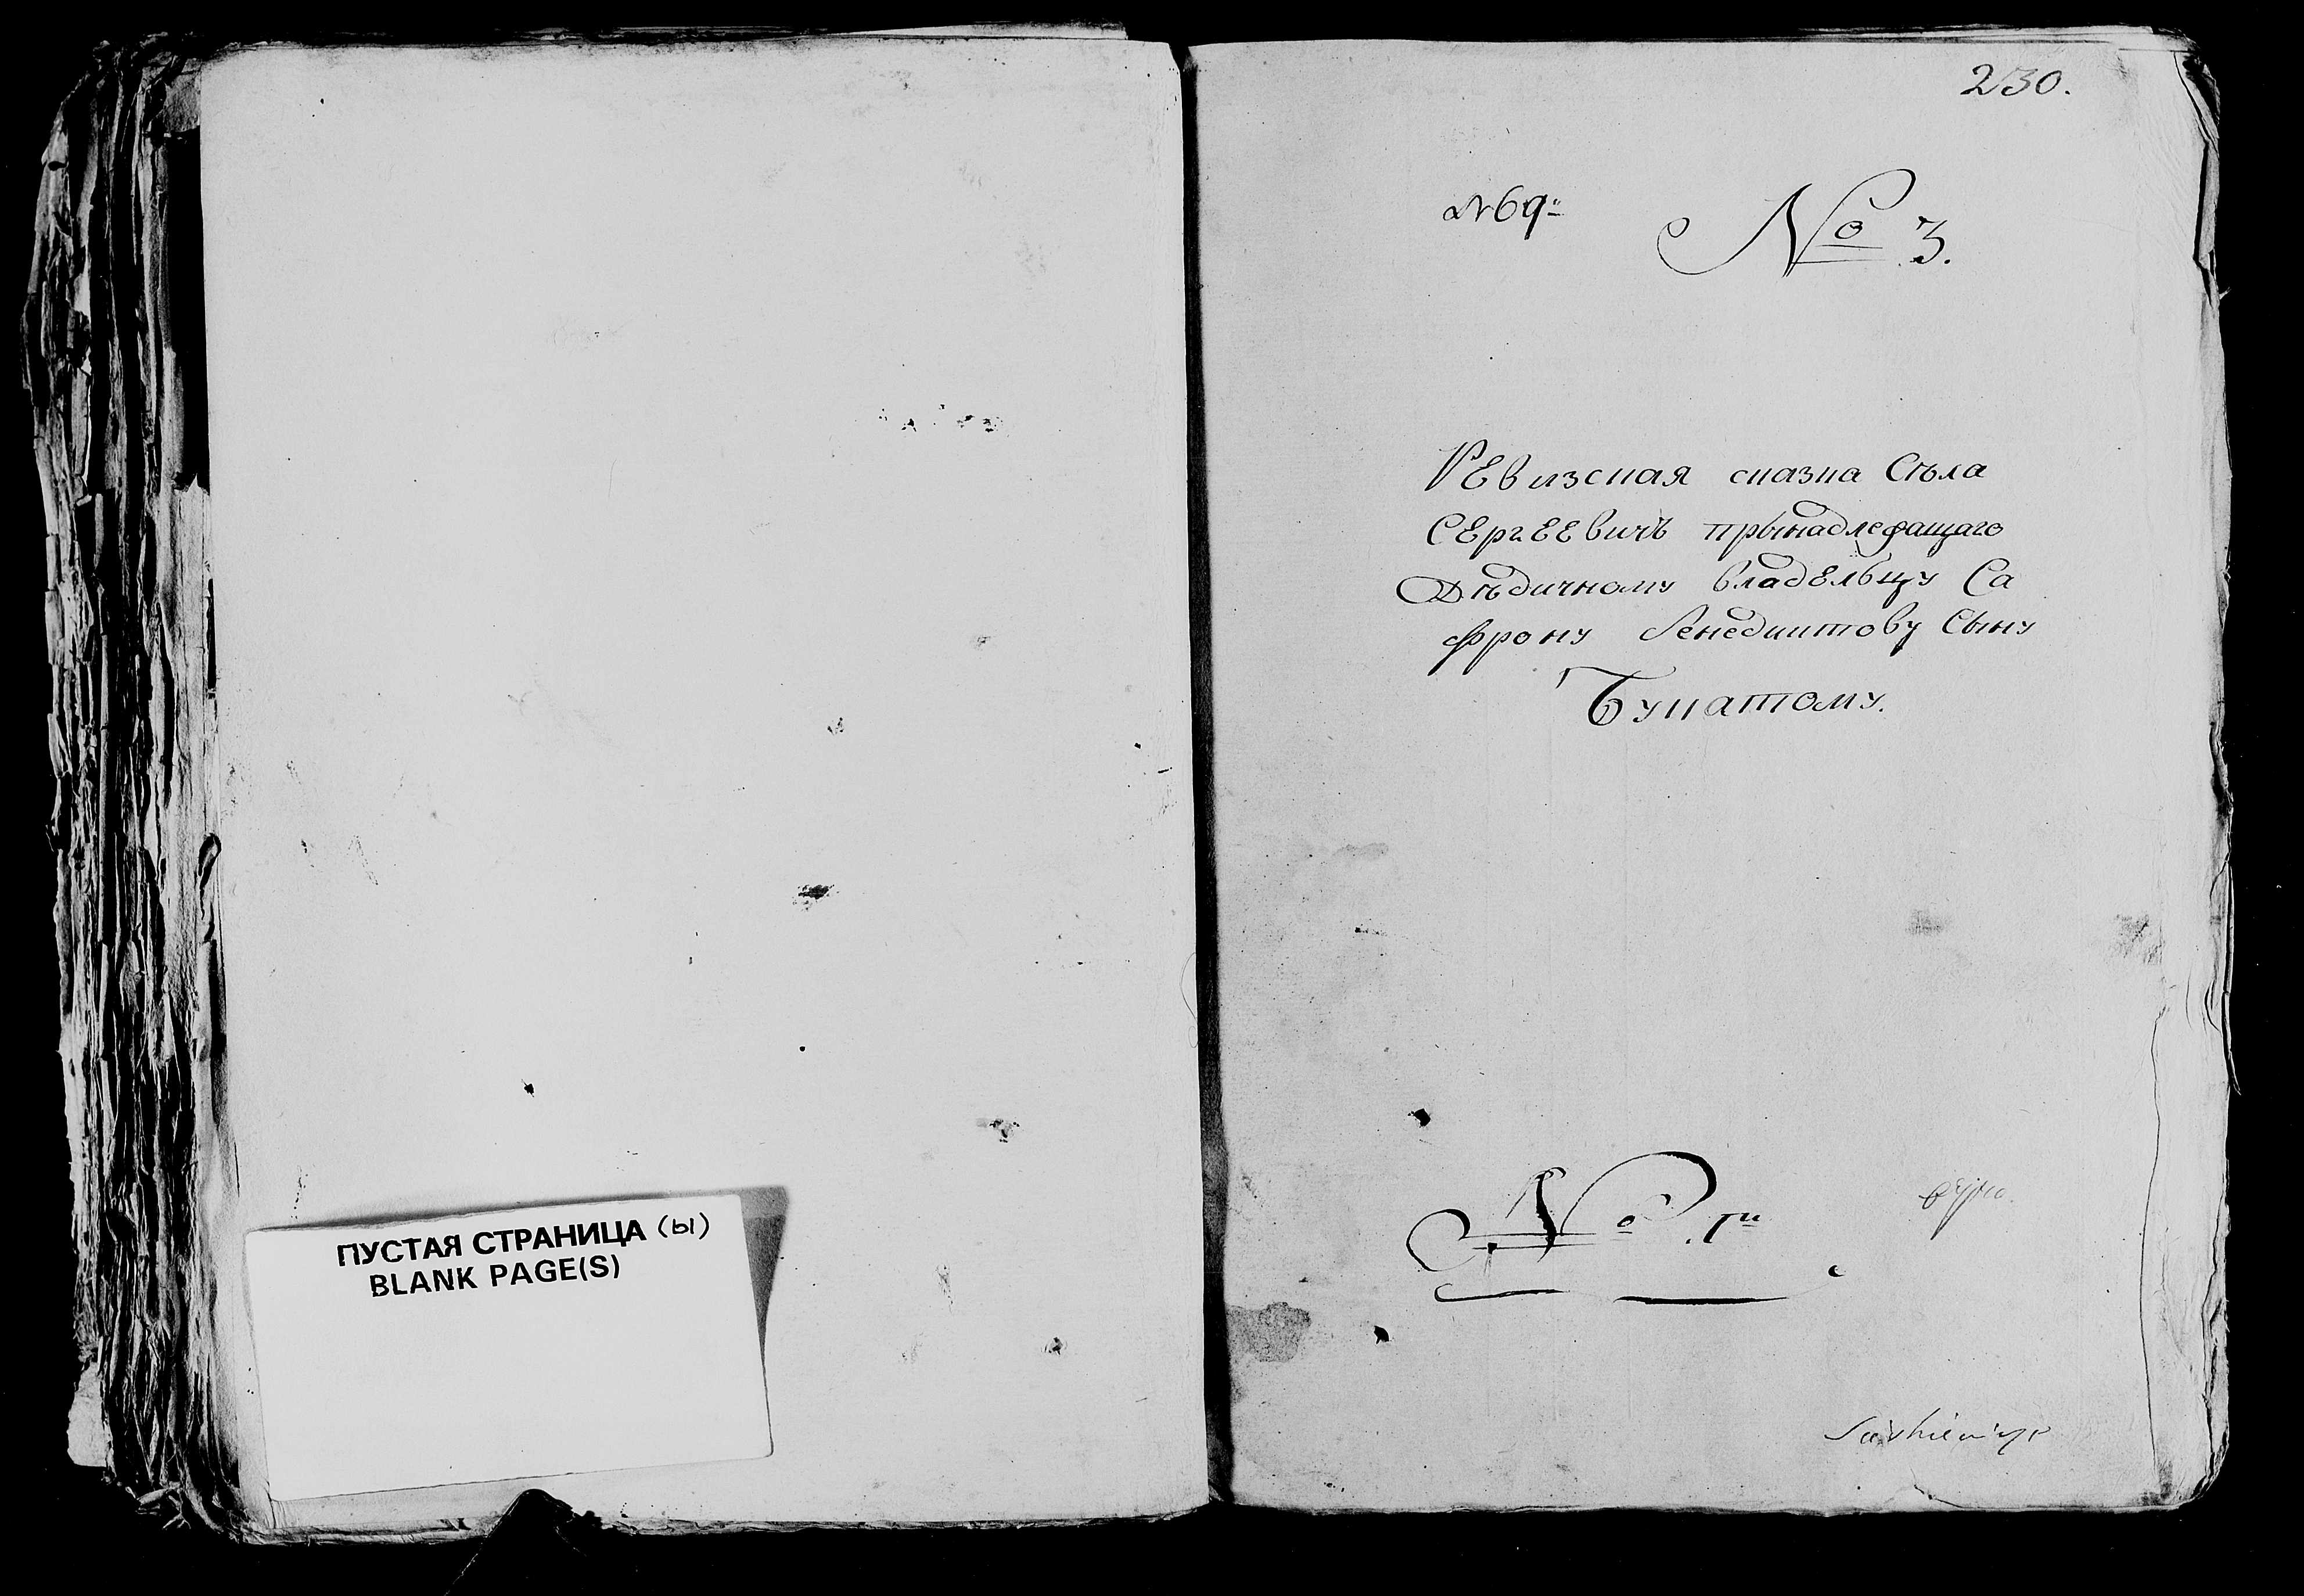 ПУСТАЯ СТРАНИЦА (ы)
BLANK PAGE(S)
230.
№69.
№ 3.
Ревизская сказка Сѣла
Сергеевичъ прынадлежащаго
Дѣдичному владельцу Са
фрону Венедиктову Сыну
Букатому.
№ 1й